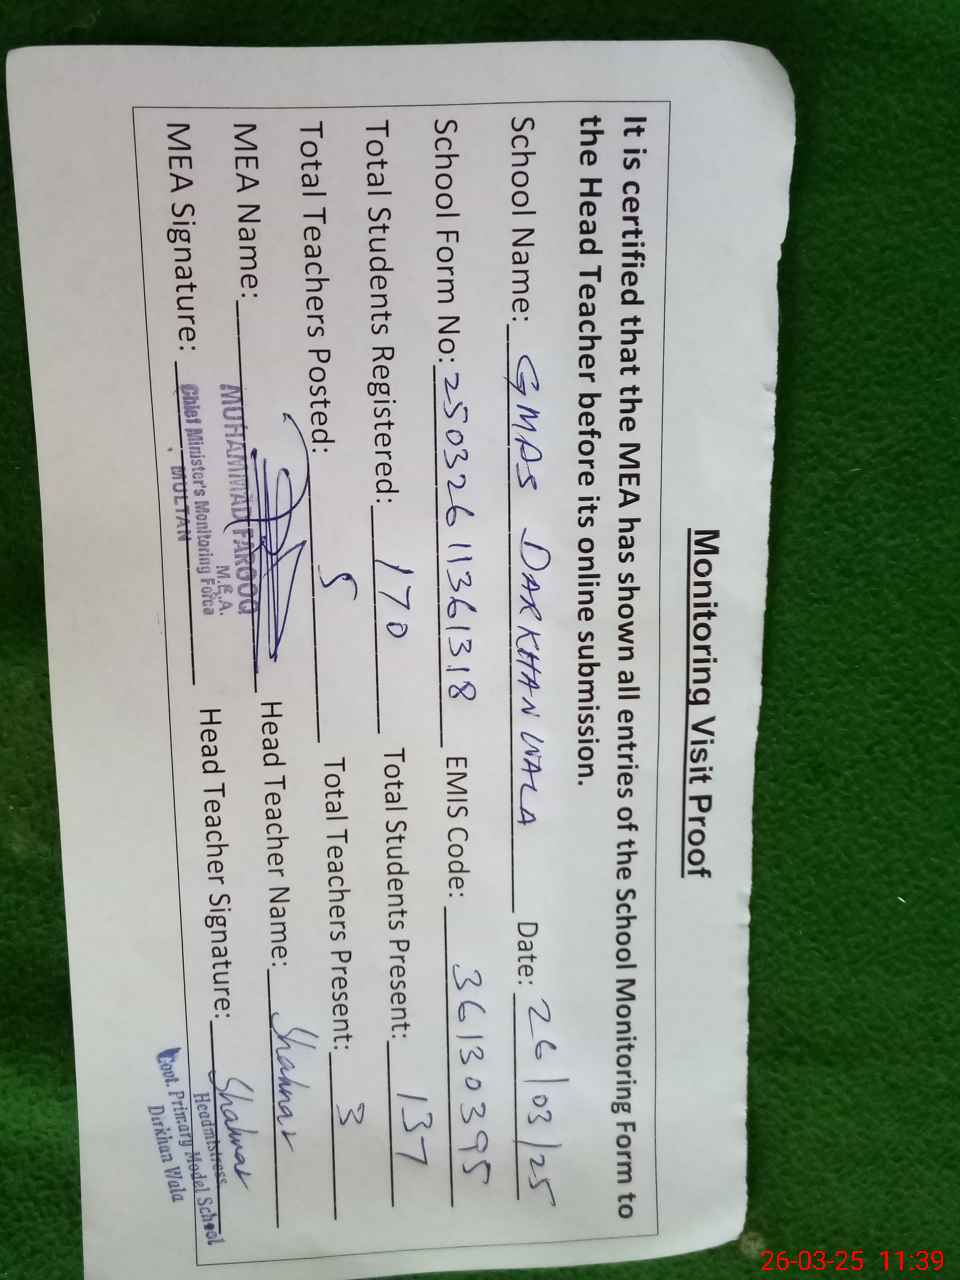 Monitoring Visit Proof
It is certified that the MEA has shown all entries of the School Monitoring Form to
the Head Teacher before its online submission.
School Name: GMPS DARKHAN WALA Date: 26/03/25
School Form No: 25032611361318 EMIS Code: 36130395
Total Students Registered: 170 Total Students Present: 137
Total Teachers Posted: 5 Total Teachers Present: 3
MEA Name: Head Teacher Name: Shahnaz
MEA Signature: Head Teacher Signature: Shahnaz
MUHAMMAD FAROOQ
M.E.A.
Chief Minister's Monitoring Force
MULTAN
Headmistress
Govt. Primary Model School
Dirkhan Wala
26-03-25 11:39